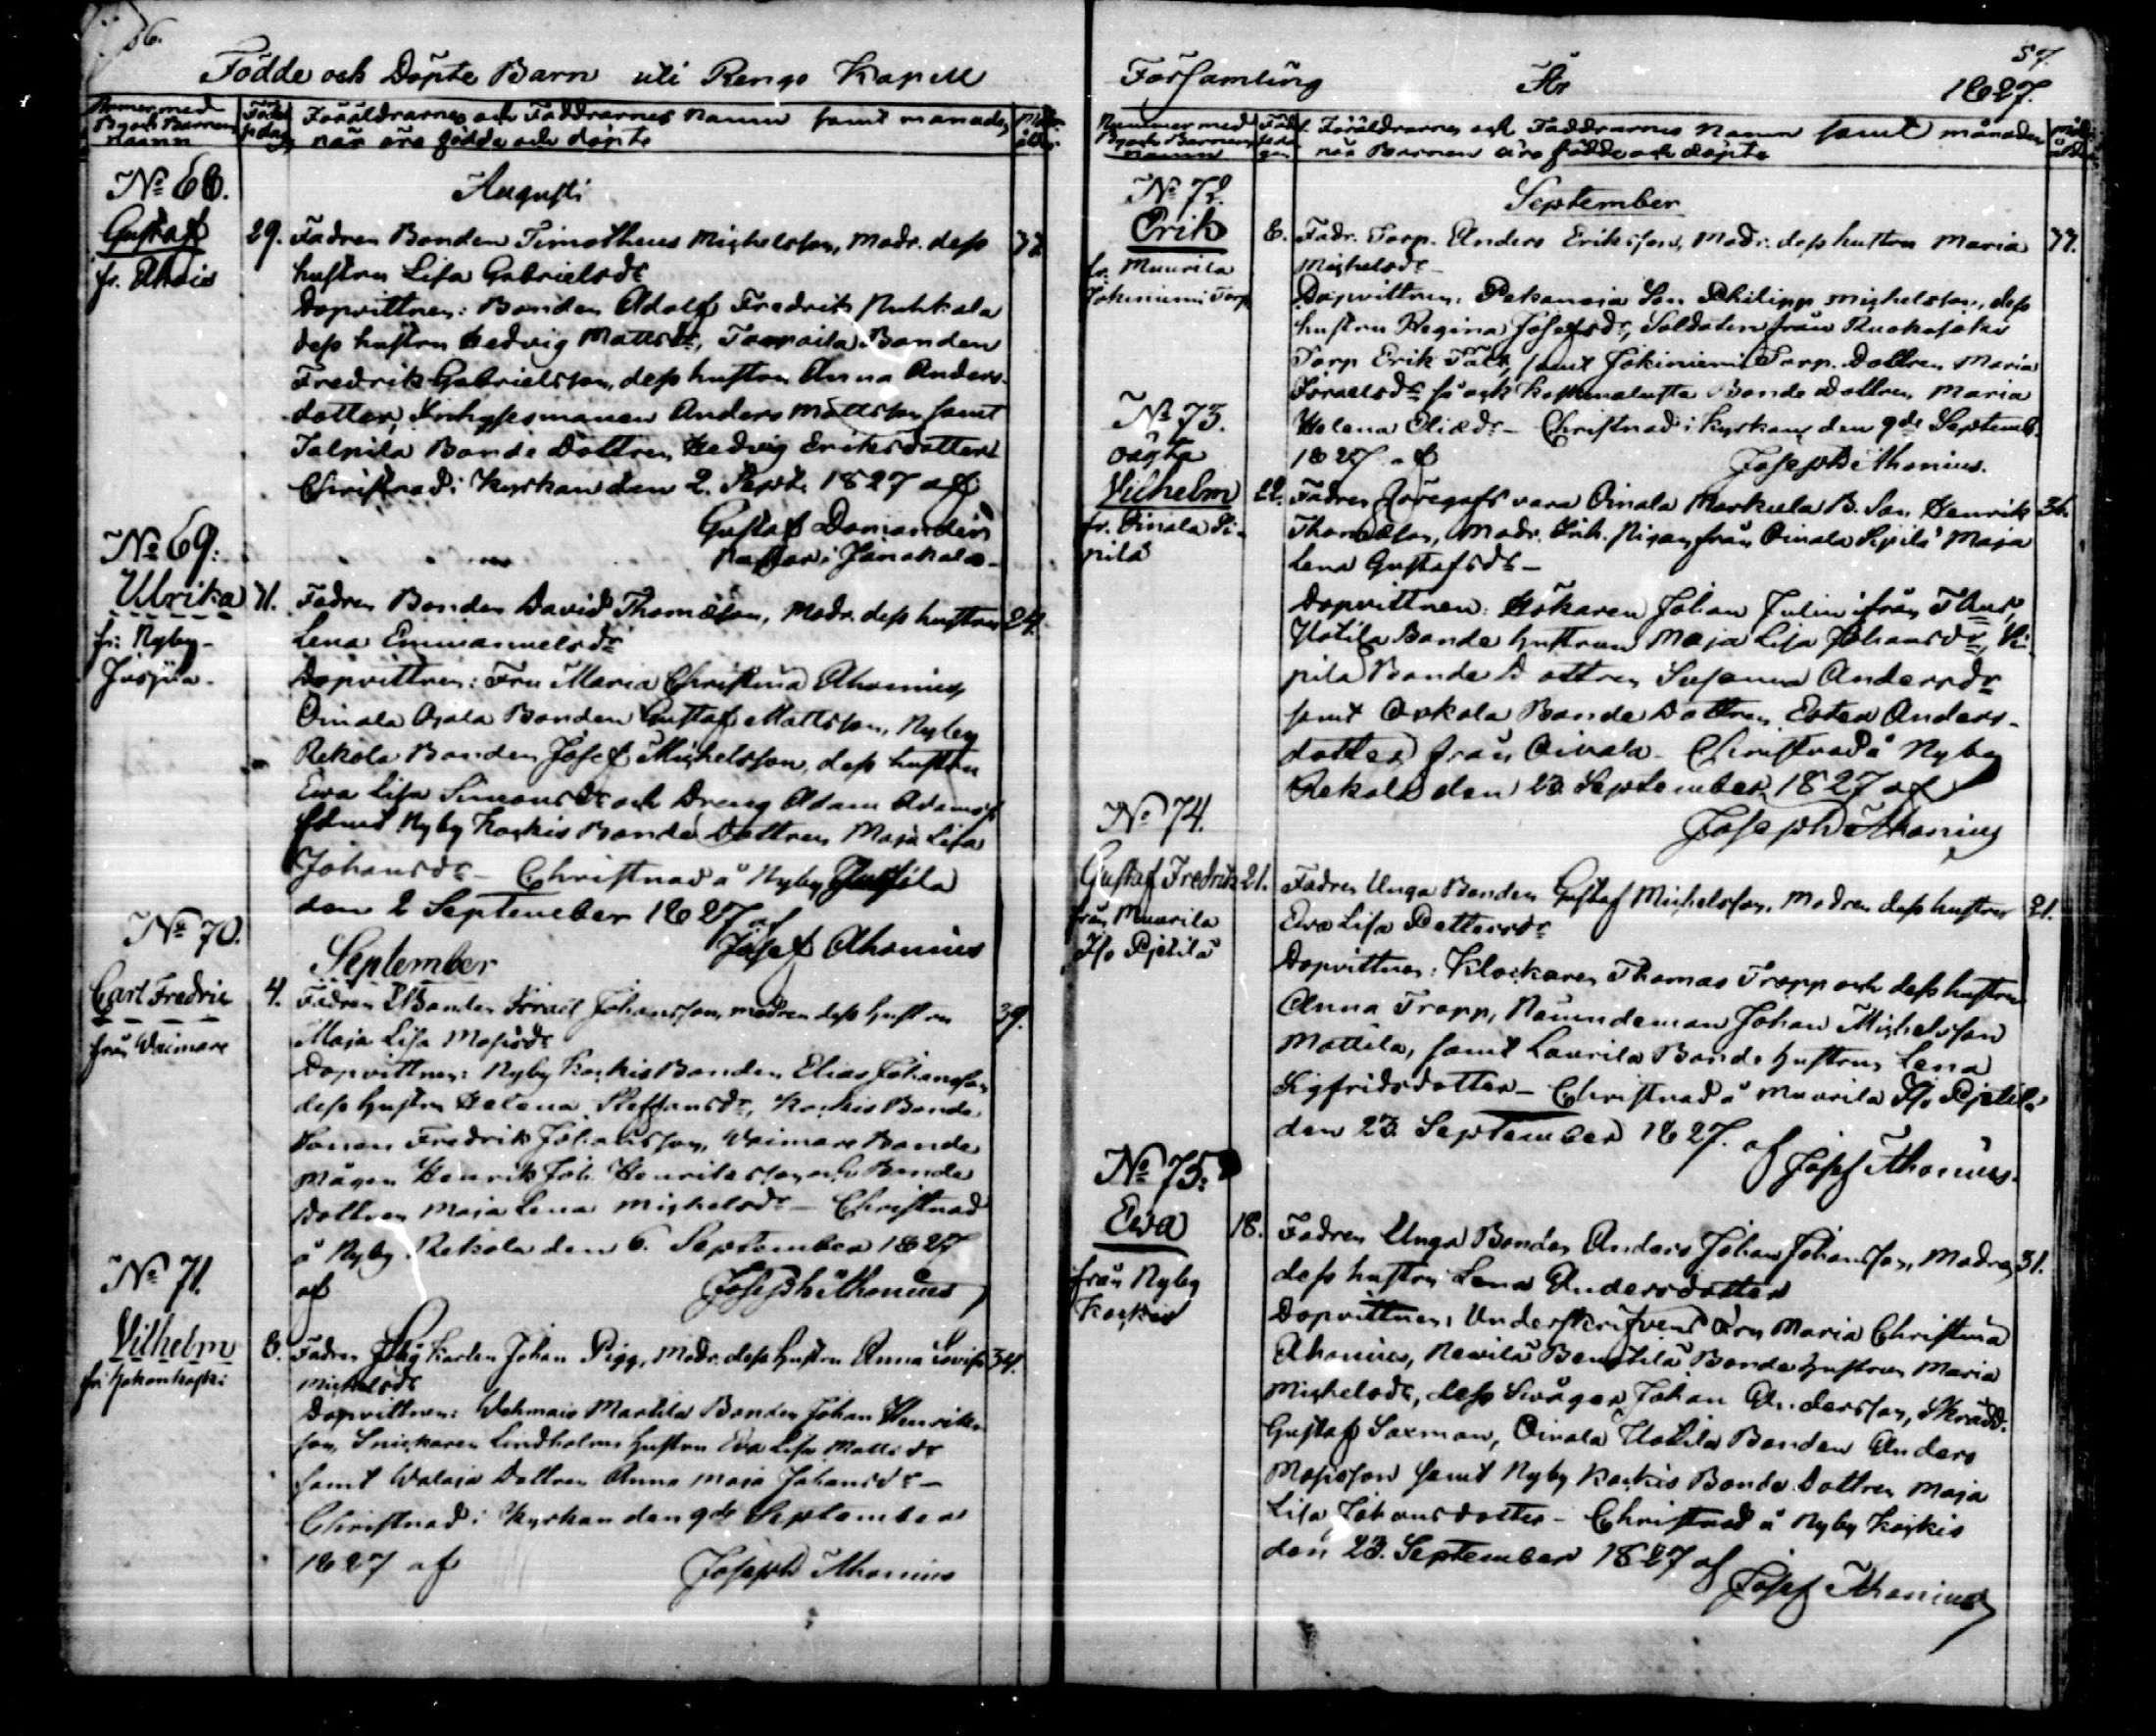 56.
Födde och Döpte Barn uti Rengo Kapell
Numer med By och Barnens Namn
Födelsedag
Föräldrarnes och Faddrarnes Namn samt månaden
när äro födde och döpte
Augusti
No 68.
Gustaf
fr. Ahois
29. Fadren Bonden Timotheus Michelsson, Modr. dess
hustru Lisa Gabrielsdr
Dopvittnen: Bonden Adolf Fredrik Nuhkala
dess hustru Hedvig Mattsdr, Bonden
Fredrik Gabrielsson, dess hustru Anna Anders-
dotter, Inhysesmannen Anders Mattsson samt
Bonde Dottren Hedvig Eriksdotter
Christnad i Kyrkan den 2. Sept. 1827 af
Gustaf Domander
Pastor i Janakala
No 69:
Ulrika
fr. Nyby-
31. Fadren Bonden David Thomasson, Modr. dess hustru 24.
Lena Emmanuelsdr
Dopvittnen: Fru Maria Christina Ahonius,
Oinala Ojala Bonden Gustaf Mattsson, Nyby
Rekola Bonden Josef Michelsson, dess hustru
Ewa Lisa Simonsdr och Dreng Adam Adamsss
samt Nyby Koskis Bonde Dottren Maja Lisa
Johansdr - Christnad å Nyby
den 2 September 1827 af
Josef Ahonius
September
No 70.
Carl Fredric
från Waimare
4. Fadren Bonden Israel Johansson, modren dess hustru 39.
Maja Lisa Mosisdr
Dopvittnen: Nyby Koskis Bonden Elias Johansson
dess hustru Helena Steffansdr, Koskis Bonde
Sonen Fredrik Johansson, Waimare Bonde
Mågen Henrik Joh. Henriksson och Bonde
Dottren Maja Lena Michelsdr - Christnad
å Nyby Rekola den 6. September 1827
af Joseph Ahonius
No 71.
Vilhelm
8. Fadren Johan Pigg, Modr. dess hustru Anna Lovisa 34.
Michelsdr
Dopvittnen: Wehmais Marttila Bonden Johan Henriks-
son, Snickaren Lindholms hustru Eva Lisa Mattsdr
samt Dottren Anna Maja Johansdr -
Christnad i Kyrkan den 9de September
1827 af Joseph Ahonius
57.
Församling År 1827.
Nummer med By och Barnens Namn
Födelsedagen
Föräldrarnes och Faddrarnes Namn samt månaden
när Barnen äro födde och döpte
September
No 72.
Erik
fr. Muurila
Jokiniemi Torp
8. Fadr. Torp. Anders Eriksson, Modr. dess hustru Maria 37.
Michelsdr -
Dopvittnen: Son Philipp Michelsson, dess
hustru Regina Josefsdr, Soldaten från
Torp Erik Tält, samt Jokiniemi Torp. Dottren Maria
Israelsdr så ock Bonde Dottren Maria
Helena Eliædr - Christnad i Kyrkan den 9de Septemb.
1827 af Joseph Ahonius.
No 73.
oägta
Vilhelm
fr. Oinala Si-
pilä
22. Fadren föregafs vara Oinala Markula B. Son Henrik 36.
Thomasson, Modr. Inh. Pigan från Oinala Sipilä Maja
Lena Gustafsdr -
Dopvittnen: Johan från
Uotila Bonde hustrun Maja Lisa Johansdr, Si-
pilä Bonde Dottren Susanna Andersdr
samt Bonde Dottren Ester Anders-
dotter från Oinala - Christnad å Nyby
Rekola den 23. September 1827 af
Joseph Ahonius
No 74.
Gustaf Fredrik
från Muurila
Iso Pjetilä
21. Fadren Unga Bonden Gustaf Michelsson, Modren dess hustru 21.
Ewa Lisa Pettersdr
Dopvittnen: Klockaren Thomas Tropp och dess hustru
Anna Tropp, Nämndeman Johan Michelsson
Mattila, samt Laurila Bonde hustrun Lena
Sigfridsdotter - Christnad å Muurila Iso Pjetilä
den 23. September 1827. af Josef Ahonius.
No 75:
Ewa
från Nyby
Koskis
18. Fadren Unga Bonden Anders Johan Johansson, Modren 31.
dess hustru Lena Andersdotter
Dopvittnen: Underskrifvens Fru Maria Christina
Ahonius, Bonde hustrun Maria
Michelsdr, dess Svåger Johan Andersson, Skrädd.
Gustaf Saxman, Oinala Uotila Bonden Anders
Mosisson samt Nyby Koskis Bonde Dottren Maja
Lisa Johansdotter - Christnad å Nyby Koskis
den 23. September 1827 af
Josef Ahonius